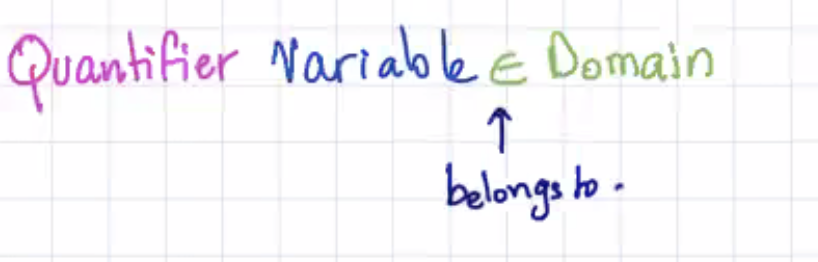 Quantifier Variable ∈ Domain
↑
belongs to.